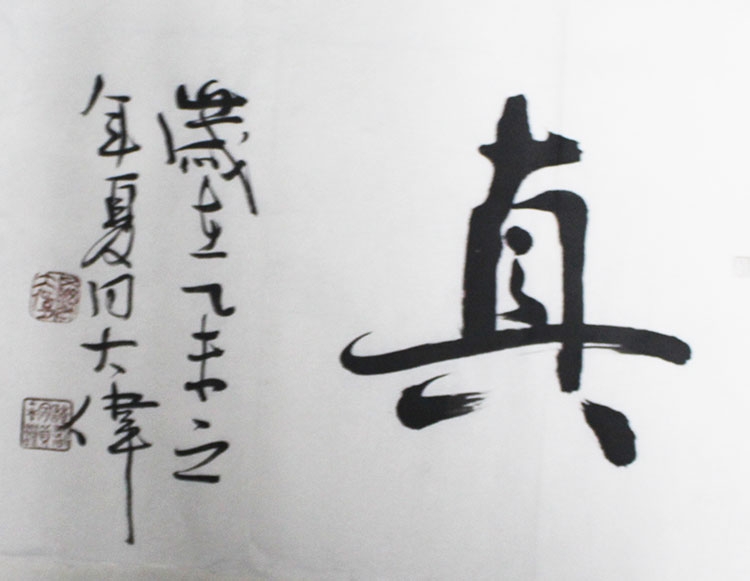 真
歲在乙未之
年夏大偉